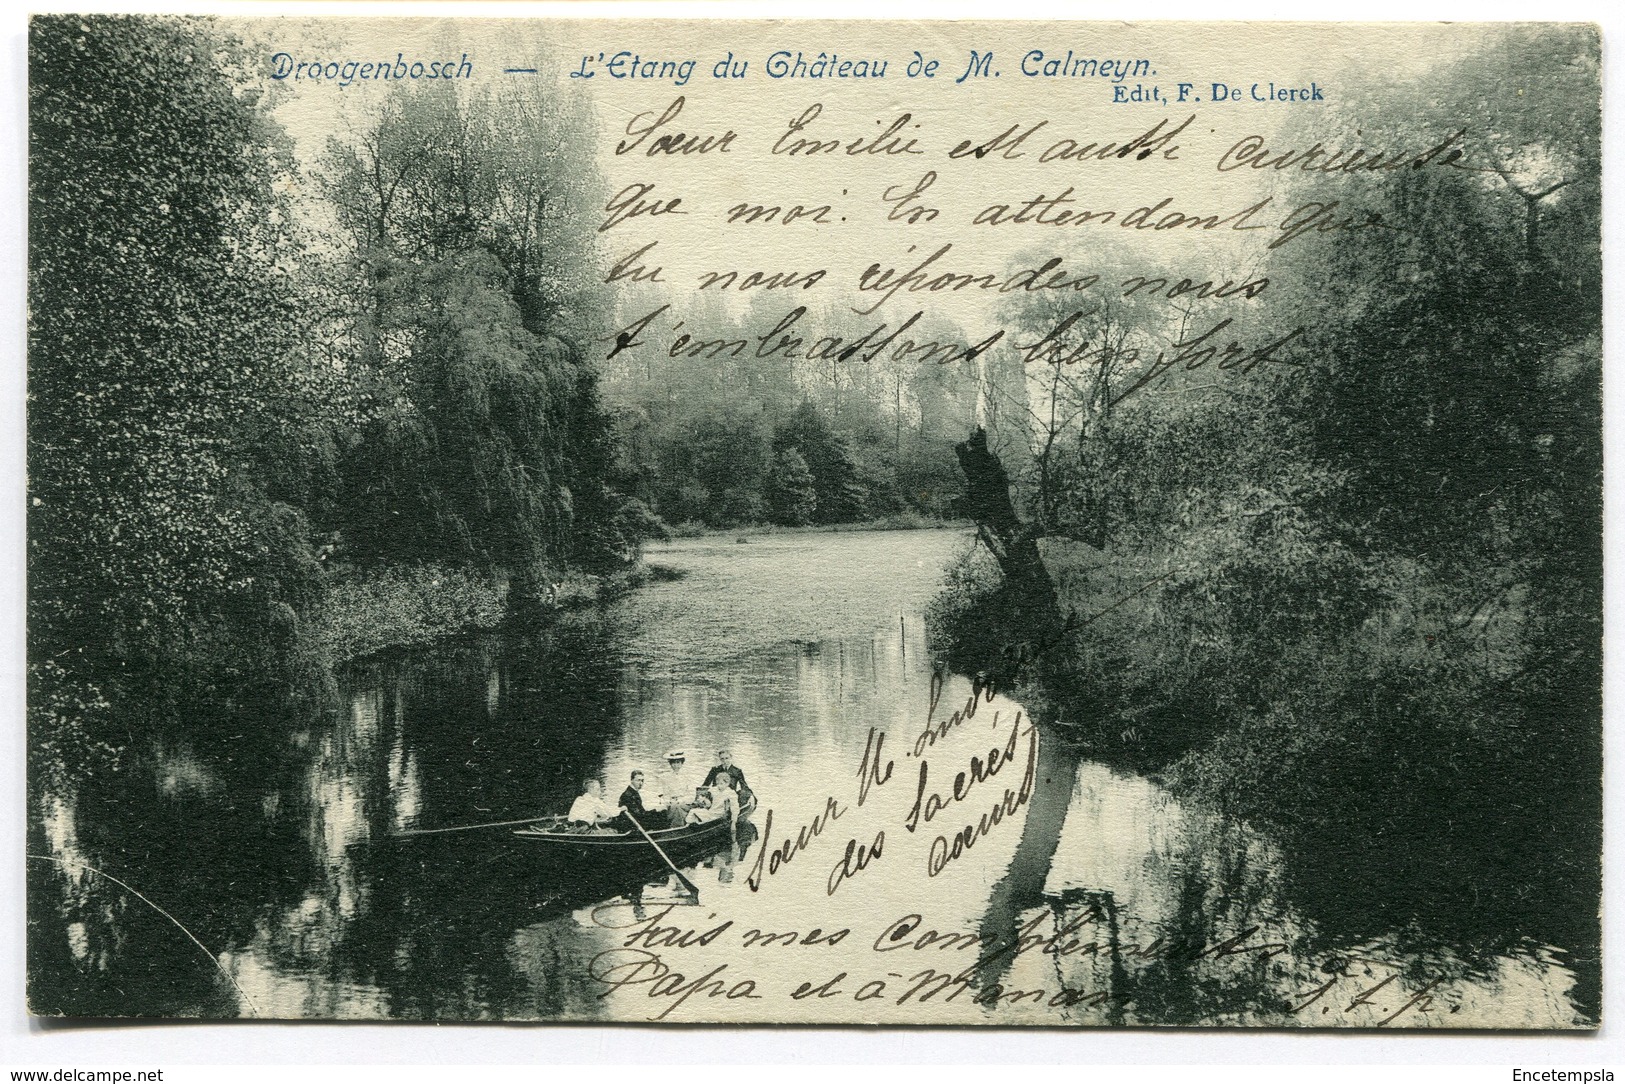 Droogenbosch — L'Etang du Château de M. Calmeyn.
Edit, F. De Clerck
Sœur Emilie est aussi curieuse
que moi. En attendant que
tu nous répondes nous
t'embrassons bien fort
Sœur M.
des Sacrés
Cœurs.
Fais mes Compléments à
Papa et à Maman S.t.p.
delcampe.net
Encetempsla